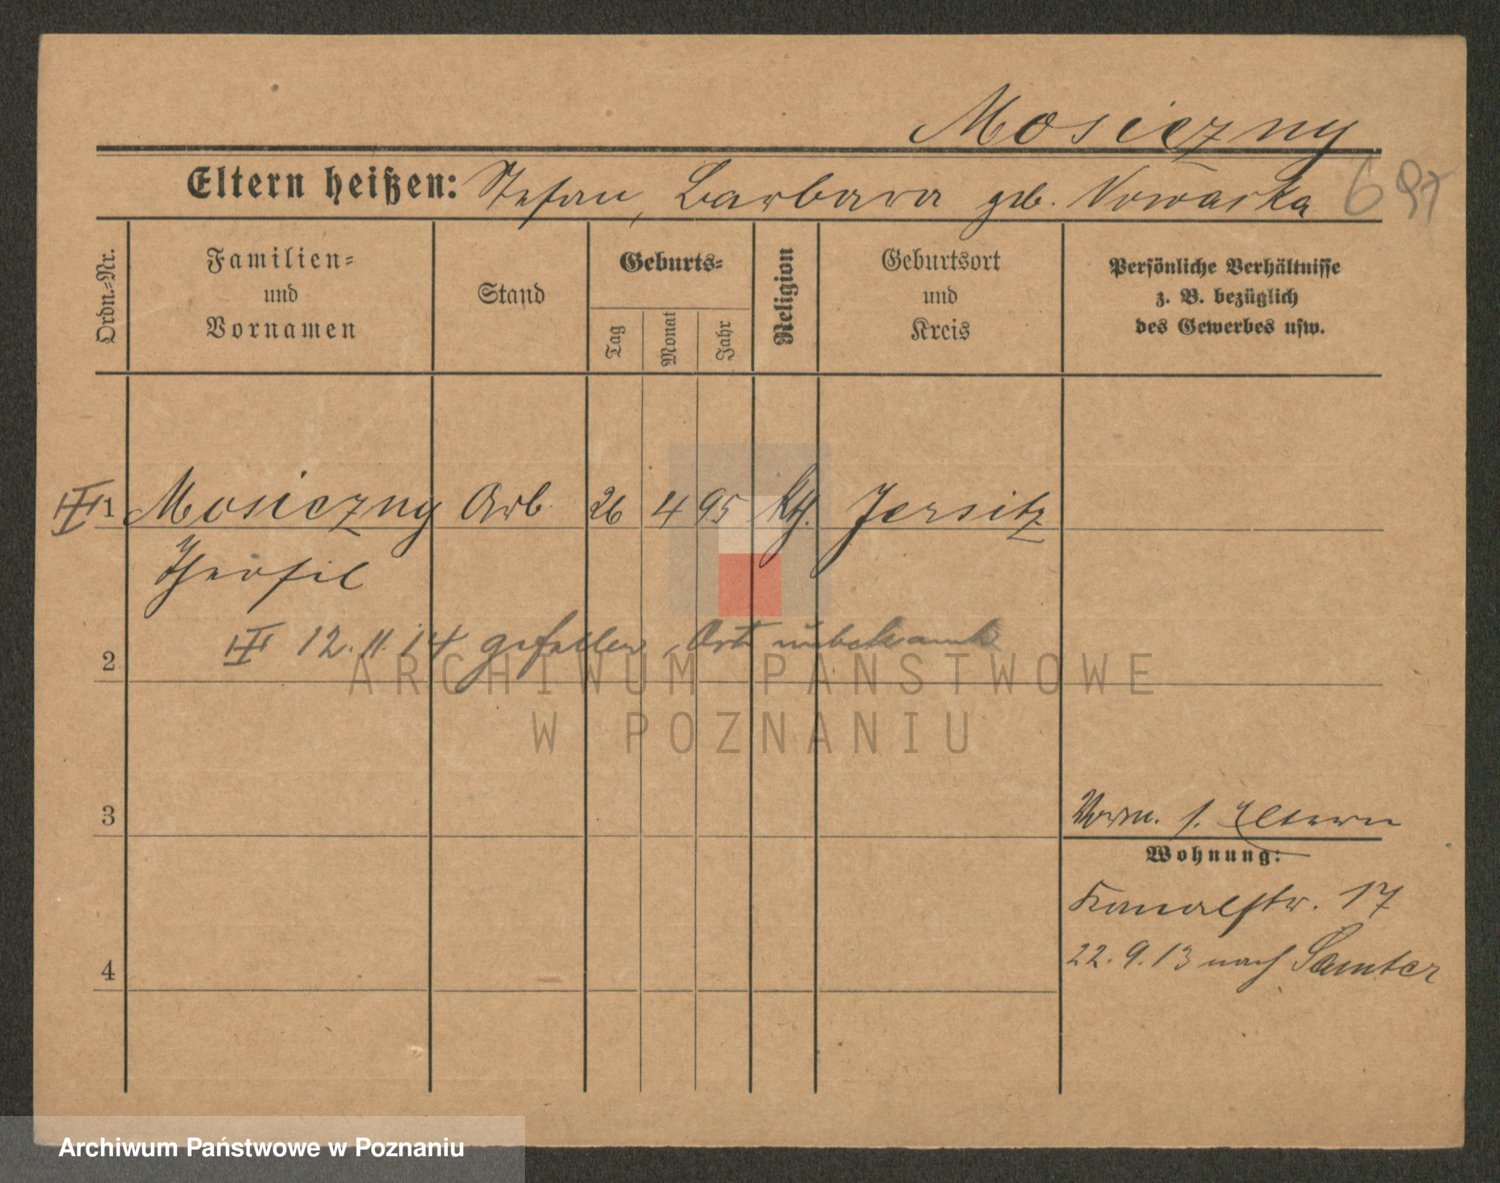 Mosiczny
Eltern heißen: Stefan, Barbara geb. Nowarka
Ordn.-Nr.
Familien-
und
Vornamen
Stand
Geburts-
Tag
Monat
Jahr
Religion
Geburtsort
und
Kreis
Persönliche Verhältnisse
z. B. bezüglich
des Gewerbes usw.
1 Mosiczny Arb 26 4 95 Kth. Jersitz
Theofil
12.11.14 gefallen, Ort unbekannt
2
ARCHIWUM PAŃSTWOWE
W POZNANIU
3
Vorm. s. Eltern
Wohnung:
Kanalstr. 17
4
22.9.13 nach Samter
Archiwum Państwowe w Poznaniu